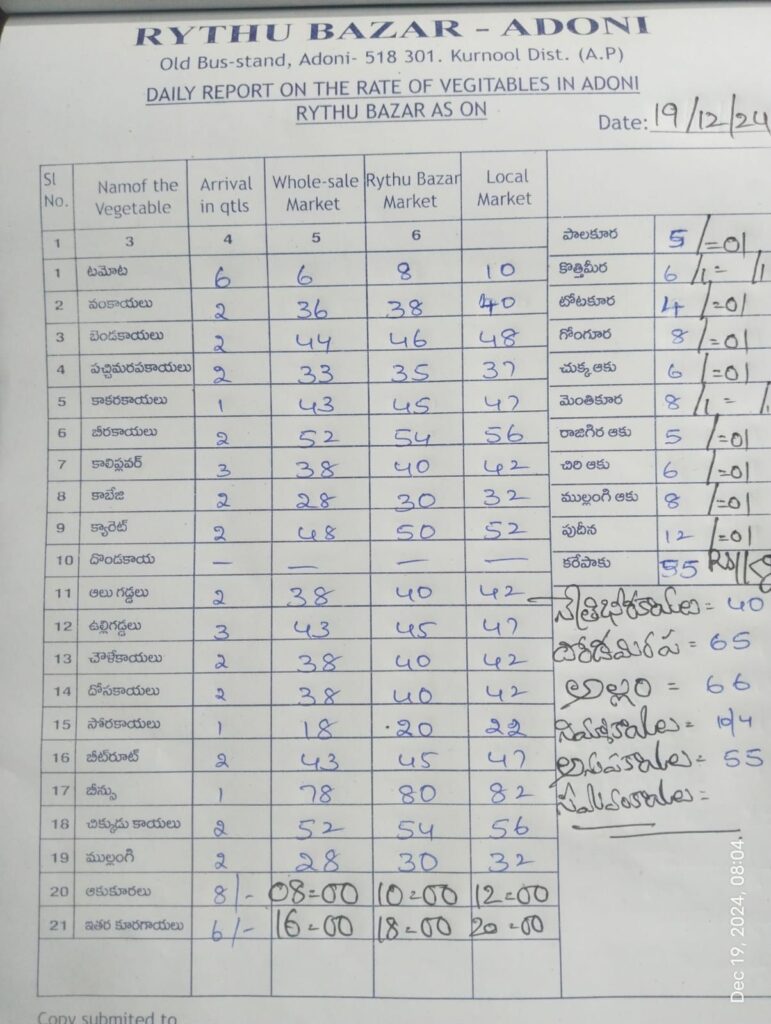 RYTHU BAZAR - ADONI
Old Bus-stand, Adoni- 518 301. Kurnool Dist. (A.P)
DAILY REPORT ON THE RATE OF VEGITABLES IN ADONI
RYTHU BAZAR AS ON
Date: 19/12/24
Sl No. Namof the Vegetable Arrival in qtls Whole-sale Market Rythu Bazar Market Local Market
1 3 4 5 6
1 టమోట 6 6 8 10
2 వంకాయలు 2 36 38 40
3 బెండకాయలు 2 44 46 48
4 పచ్చిమిరపకాయలు 2 33 35 37
5 కాకరకాయలు 1 43 45 47
6 బీరకాయలు 2 52 54 56
7 కాలిఫ్లవర్ 3 38 40 42
8 కాబేజి 2 28 30 32
9 క్యారెట్ 2 48 50 52
10 దొండకాయ — — — —
11 ఆలు గడ్డలు 2 38 40 42
12 ఉల్లిగడ్డలు 3 43 45 47
13 చౌళేకాయలు 2 38 40 42
14 దోసకాయలు 2 38 40 42
15 సోరకాయలు 1 18 20 22
16 బీట్‌రూట్ 2 43 45 47
17 బీన్సు 1 78 80 82
18 చిక్కుడు కాయలు 2 52 54 56
19 ముల్లంగి 2 28 30 32
20 ఆకుకూరలు 8/- 08=00 10=00 12=00
21 ఇతర కూరగాయలు 6/- 16=00 18=00 20=00
పాలకూర 5 /=01
కొత్తిమీర 6 /1=
తోటకూర 4 /=01
గోంగూర 8 /=01
చుక్క ఆకు 6 /=01
మెంతికూర 8 /1=
రాజగిర ఆకు 5 /=01
చిరి ఆకు 6 /=01
ముల్లంగి ఆకు 8 /=01
పుదీన 12 /=01
కరేపాకు 55
= 40
= 65
అల్లం = 66
నిమ్మకాయలు = 10/4
= 55
Copy submited to
Dec 19, 2024, 08:04.